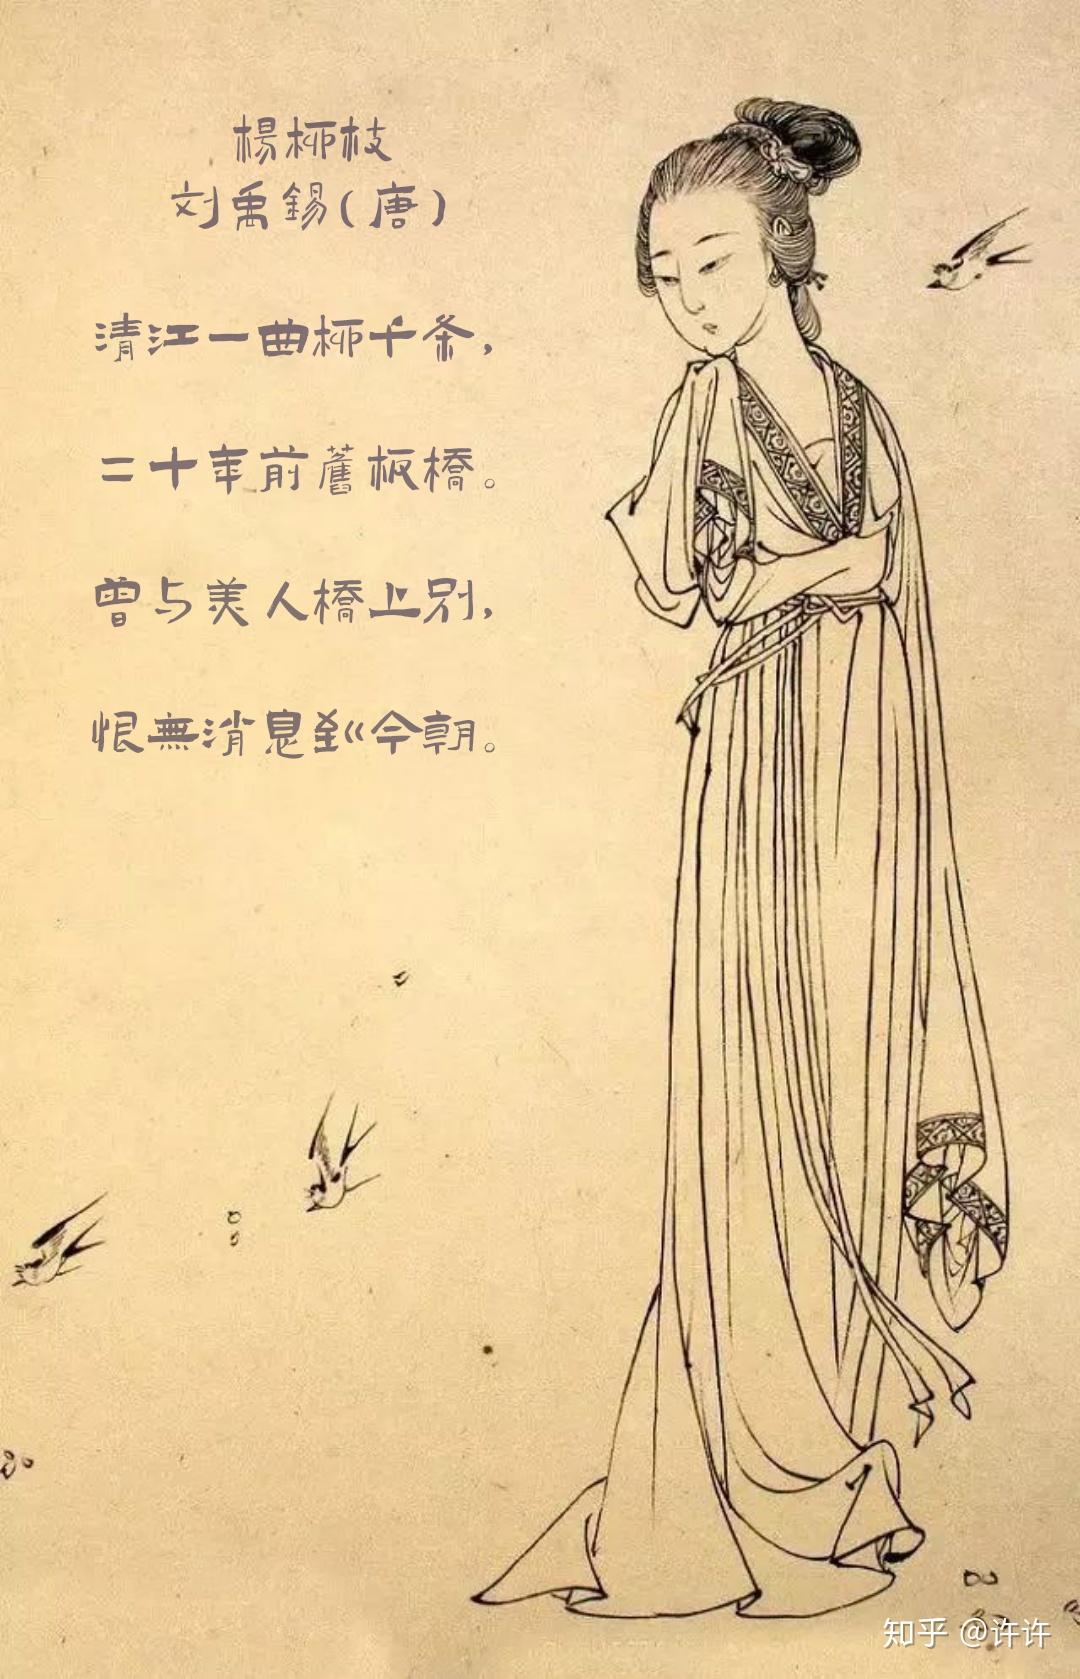 楊柳枝
刘禹錫(唐)
清江一曲柳千条,
二十年前舊板橋。
曾与美人橋上别,
恨無消息到今朝。
知乎 @许许